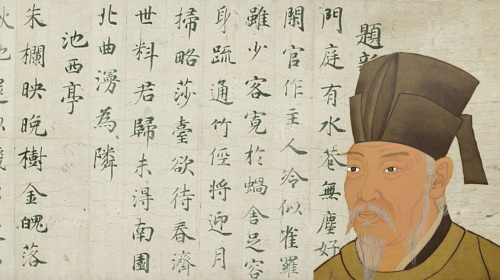 題
門庭有水巷無塵好
閑官作主人冷似雀羅
雖少客寬於蝸舍足容
身疏通竹俓將迎月
掃略莎臺欲待春濟
世料君歸未淂南園
北曲漫為隣
池西亭
朱欄映晚樹金魄落